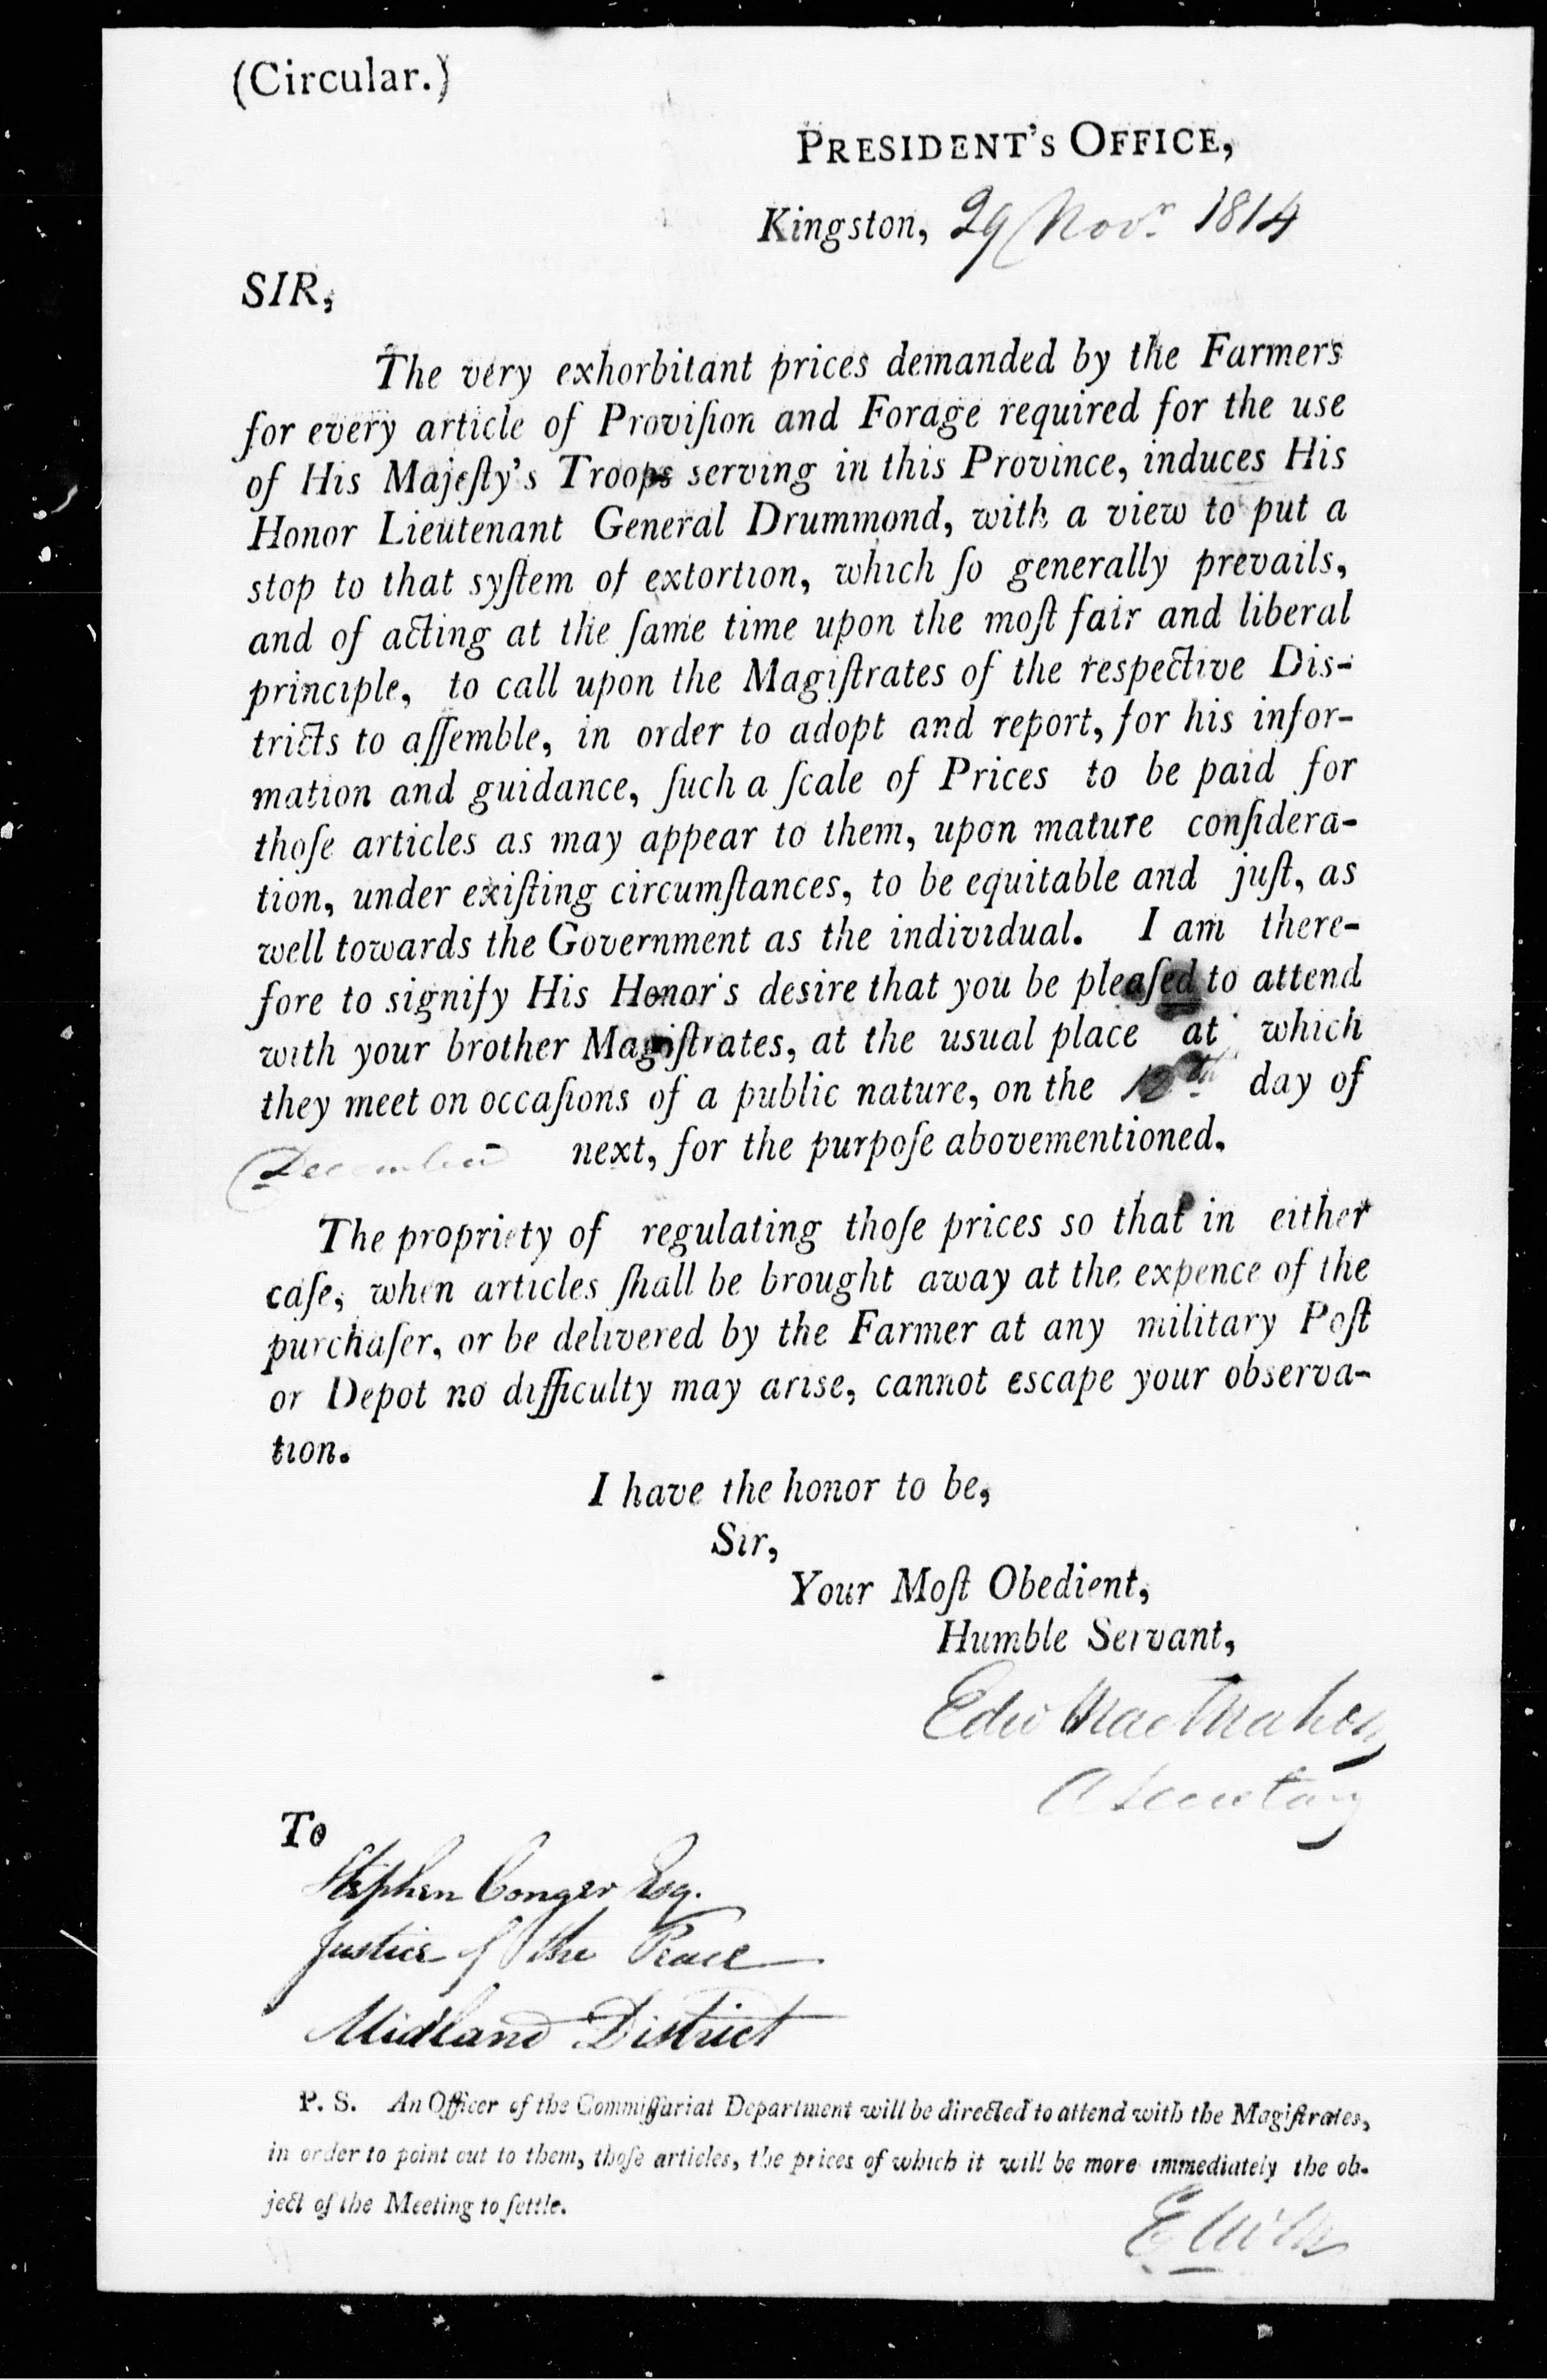 (Circular.)
PRESIDENT'S OFFICE,
Kingston, 29 Novr. 1814
SIR,
The very exhorbitant prices demanded by the Farmers
for every article of Proviſion and Forage required for the use
of His Majeſty's Troops serving in this Province, induces His
Honor Lieutenant General Drummond, with a view to put a
stop to that syſtem of extortion, which ſo generally prevails,
and of acting at the ſame time upon the moſt fair and liberal
principle, to call upon the Magiſtrates of the respective Dis-
tricts to aſſemble, in order to adopt and report, for his infor-
mation and guidance, ſuch a ſcale of Prices to be paid for
thoſe articles as may appear to them, upon mature conſidera-
tion, under exiſting circumſtances, to be equitable and juſt, as
well towards the Government as the individual. I am there-
fore to signify His Honor's desire that you be pleaſed to attend
with your brother Magiſtrates, at the usual place at which
they meet on occaſions of a public nature, on the day of
December next, for the purpoſe abovementioned.
The propriety of regulating thoſe prices so that in either
caſe, when articles ſhall be brought away at the expence of the
purchaſer, or be delivered by the Farmer at any military Poſt
or Depot no difficulty may arise, cannot escape your observa-
tion.
I have the honor to be,
Sir,
Your Moſt Obedient,
Humble Servant,
Edw MacMahon
A Secretary
To
Stephen Conger Esq.
Justice of the Peace
Midland District
P. S. An Officer of the Commiſſariat Department will be directed to attend with the Magiſtrates,
in order to point out to them, thoſe articles, the prices of which it will be more immediately the ob-
ject of the Meeting to ſettle.